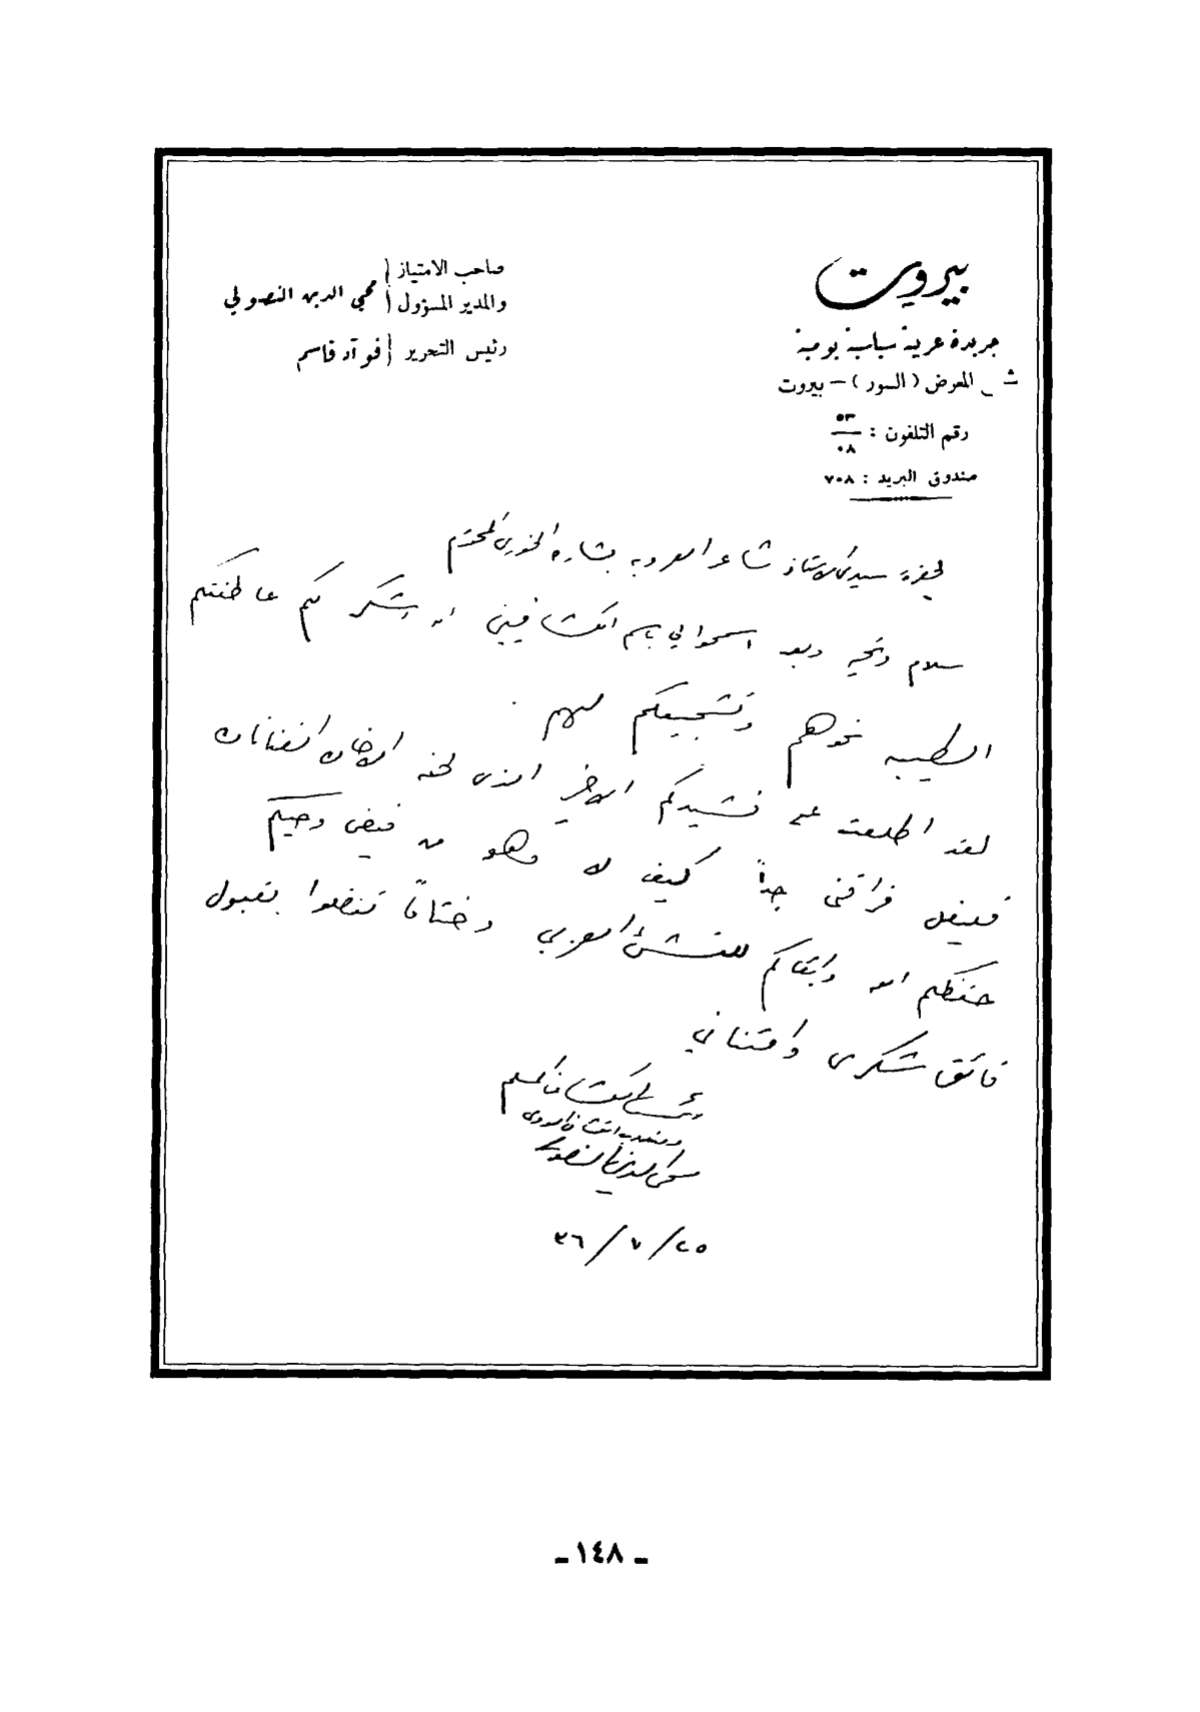 بيروت
جريدة عربية سياسية يومية
المعرض (السور) – بيروت
رقم التلفون : ٥٣ / ٠٨
صندوق البريد : ٧٠٨
صاحب الامتياز
والمدير المسؤول
محيي الدين النصولي
رئيس التحرير
فوآد قاسم
لحضرة سيدي الاستاذ شاعر العروبه بشاره الخوري المحترم
سلام وتحيه وبعد اسمحوا لي باسم الكشافيين ان اشكر لكم عاطفتكم
الطيبه نحوهم وتشجيعكم لهم.
لقد اطلعت على نشيدكم الاخير الذي لحنه الاخوان
فليفل فراقني جداً كيف لا وهو من فيض وحيكم
حفظكم الله وابقاكم للنشئ العربي وختاماً تفضلوا بقبول
فائق شكري وامتناني
الكشاف المسلم
محي الدين النصولي
٢٥ / ٧ / ٣٦
ـ ١٤٨ ـ